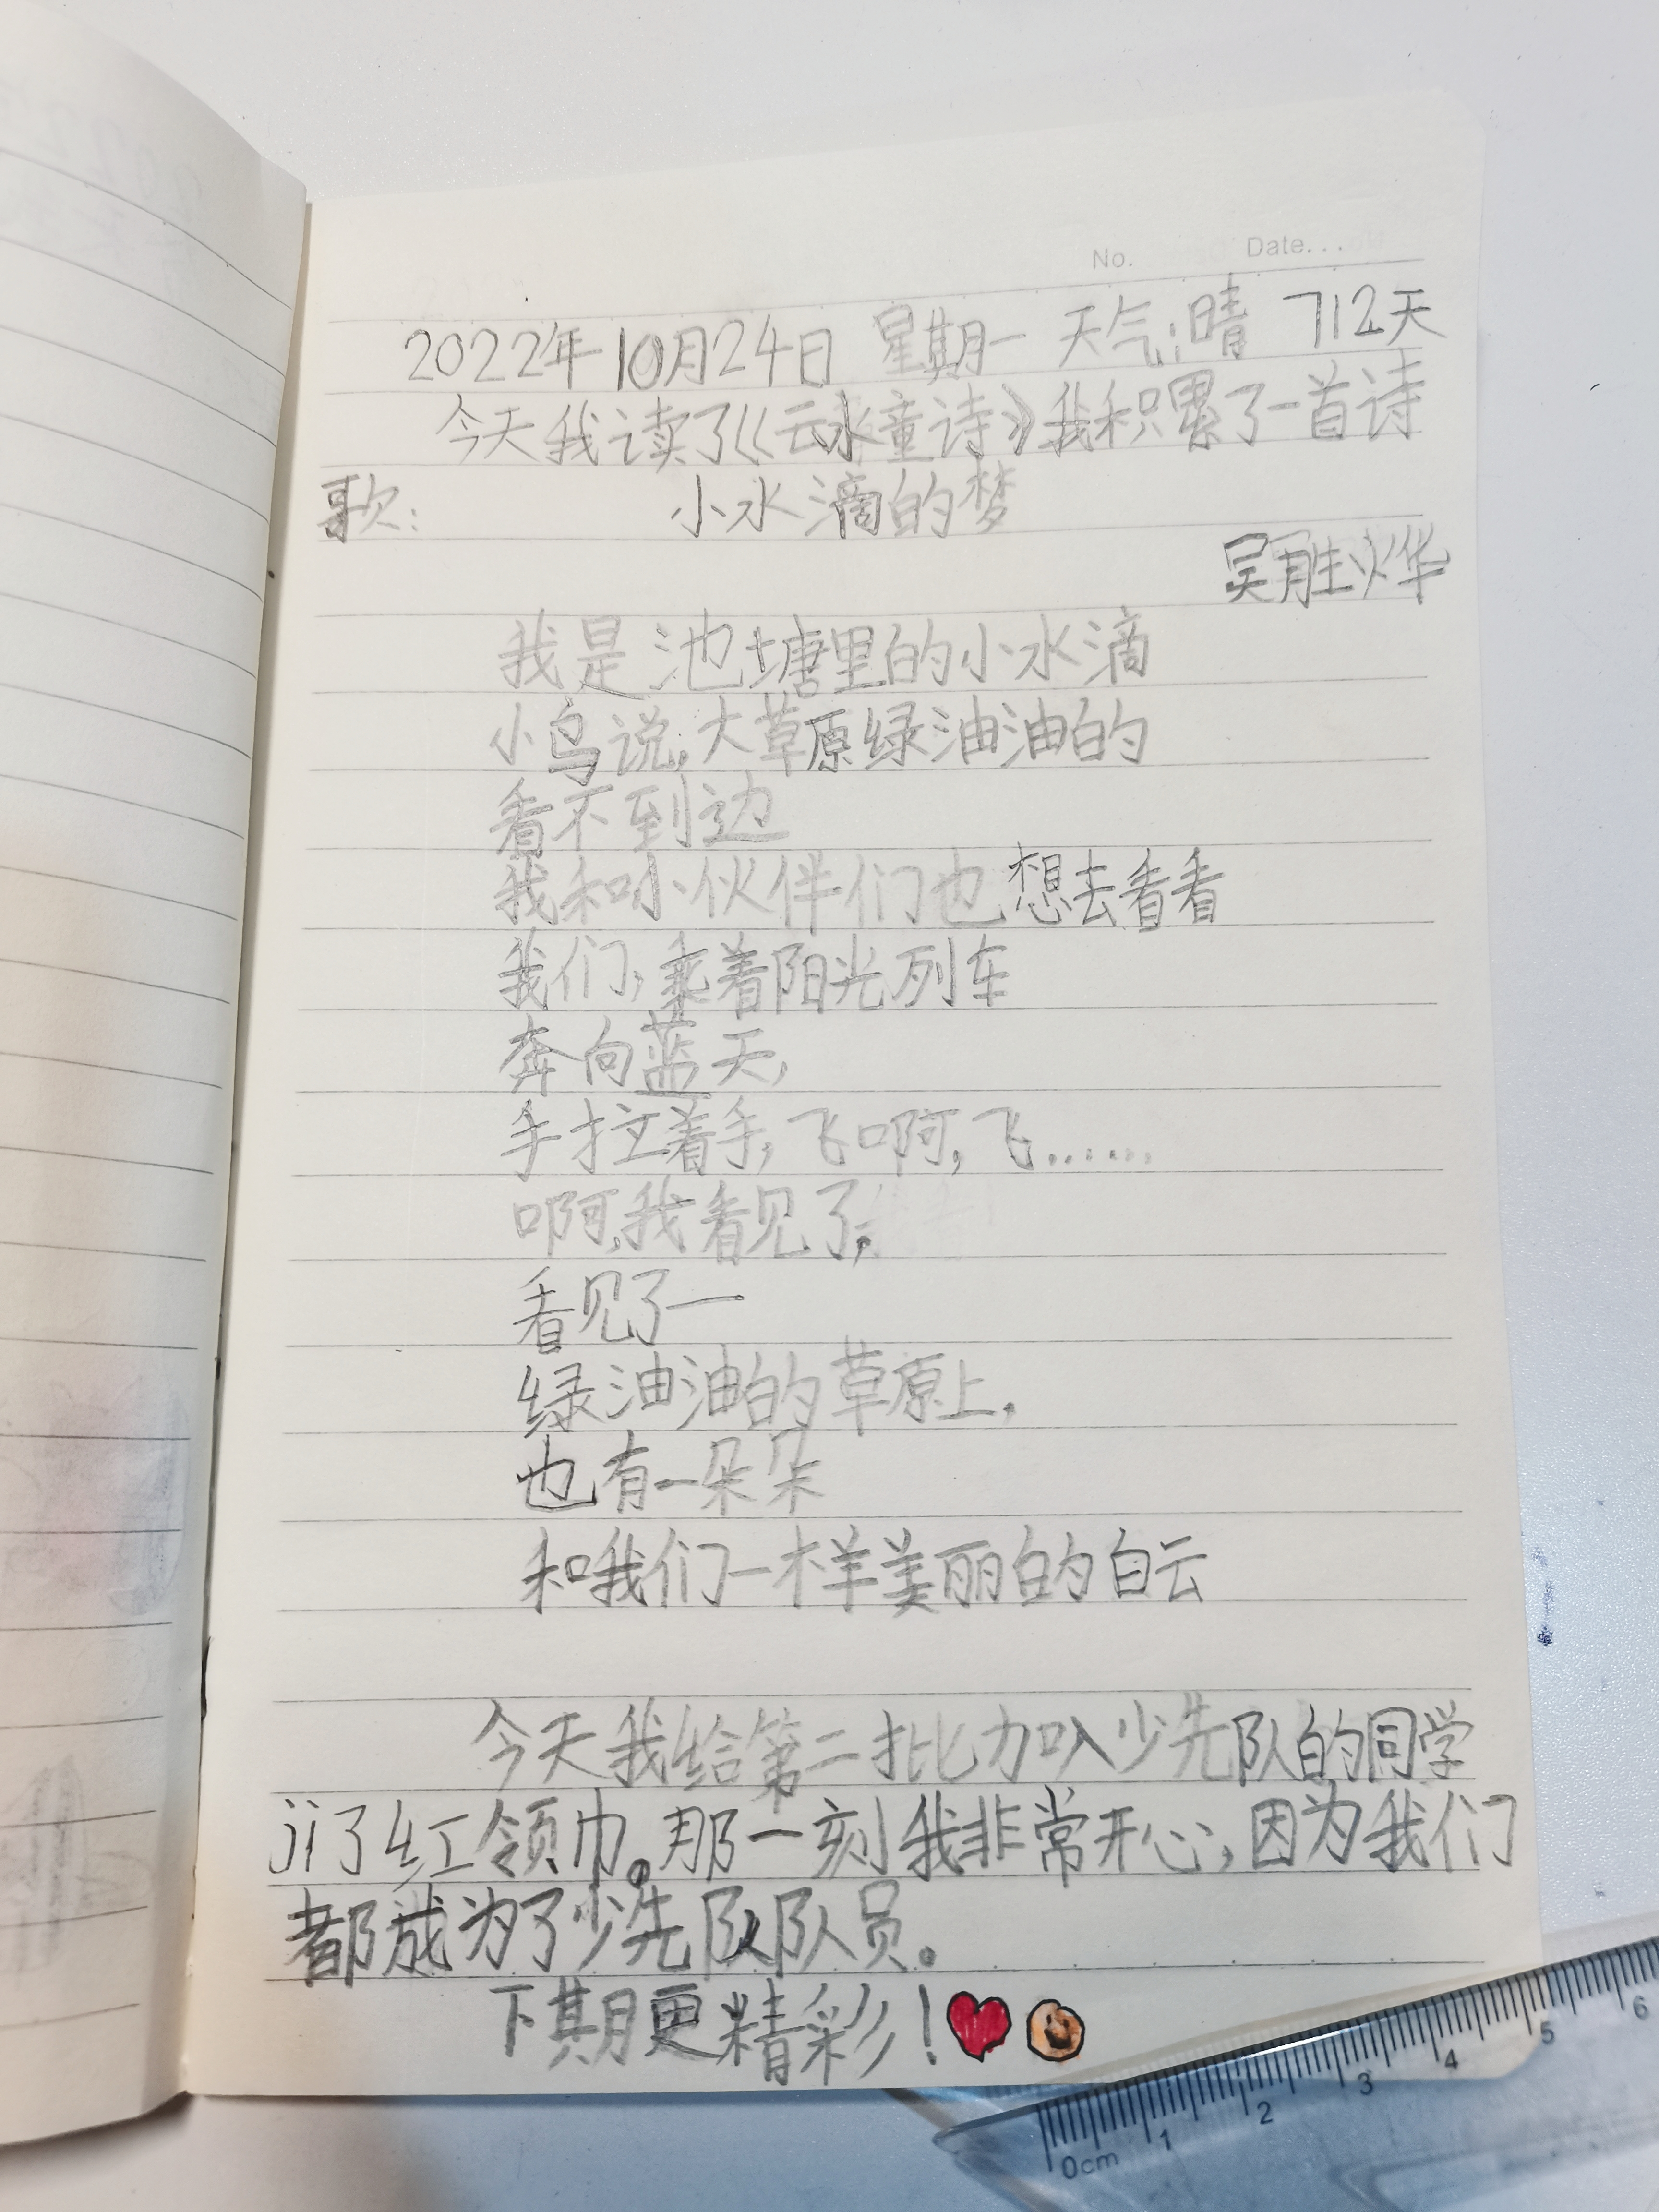 No. Date...
2022年10月24日 星期一 天气:晴 712天
今天我读了《云水童诗》我积累了一首诗
歌: 小水滴的梦
吴胜烨
我是池塘里的小水滴
小鸟说,大草原绿油油的
看不到边
我和小伙伴们也想去看看
我们,乘着阳光列车
奔向蓝天,
手拉着手,飞啊,飞......
啊,我看见了,
看见了一
绿油油的草原上,
也有一朵朵
和我们一样美丽的白云
今天我给第二批加入少先队的同学
ji了红领巾。那一刻我非常开心,因为我们
都成为了少先队队员。
下期更精彩!
0cm 1 2 3 4 5 6